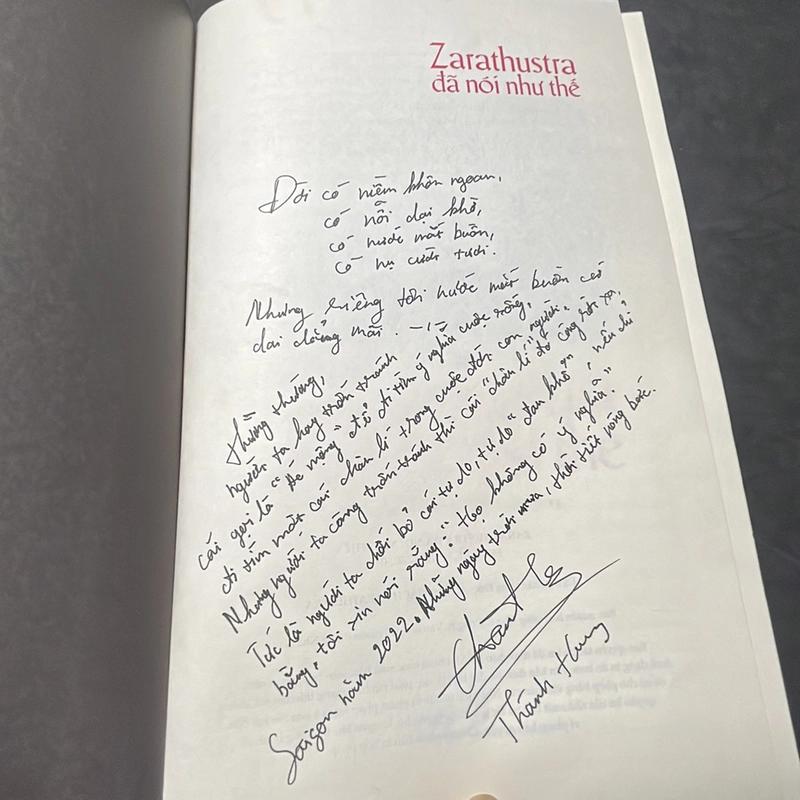 Zarathustra
đã nói như thế
Đời có niềm khôn ngoan,
có nỗi dại khờ,
có nước mắt buồn,
có nụ cười tươi.
Nhưng riêng tôi nước mắt buồn cứ
dai dẳng mãi.
Thằng thường,
người ta hay trốn tránh
cái gọi là "sẽ mộng" để đi tìm ý nghĩa cuộc sống,
đi tìm một cái chân lí trong cuộc đời con người.
Nhưng người ta càng trốn tránh thì cái "chân lí" đó càng rời xa,
Tức là người ta chối bỏ cái tự do, tự do "đau khổ", nếu chỉ
bằng, tôi xin nói rằng: "Heo không có ý nghĩa."
Saigon năm 2022. Những ngày trời mưa, thời tiết nóng bức.
Thành Hưng